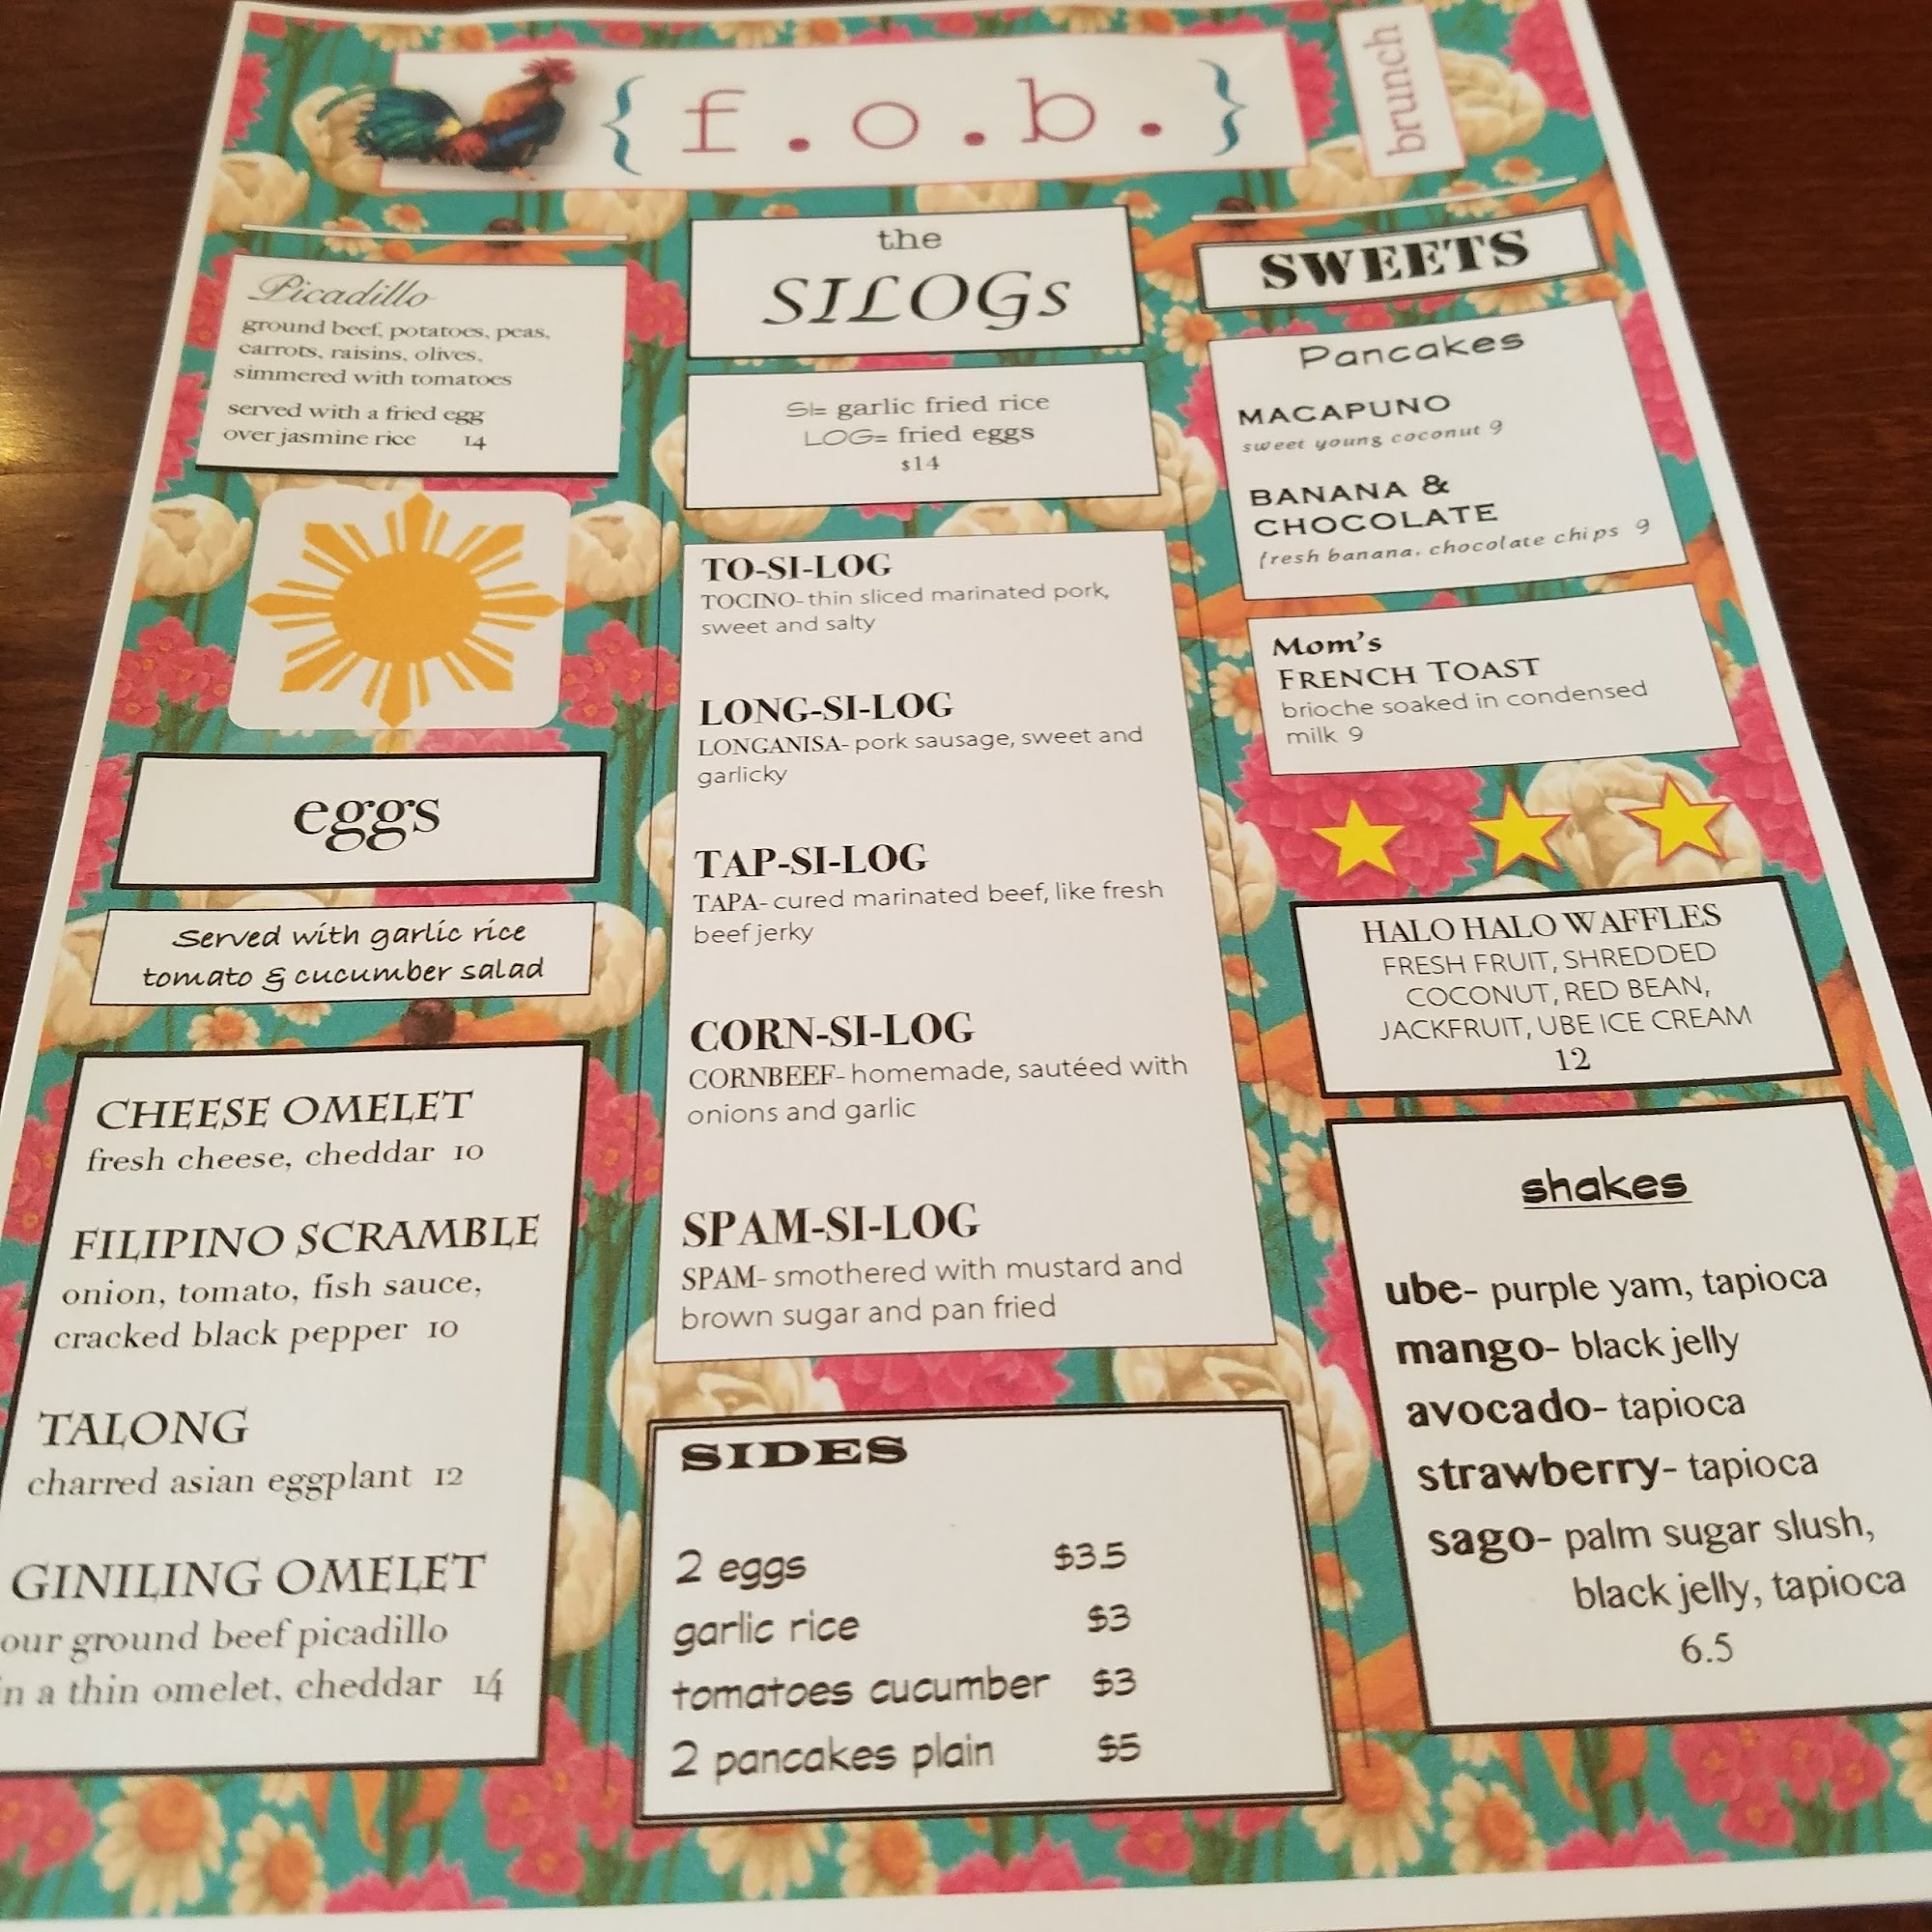 {f.o.b.}
brunch
Picadillo
ground beef, potatoes, peas,
carrots, raisins, olives,
simmered with tomatoes
served with a fried egg
over jasmine rice 14
eggs
Served with garlic rice
tomato & cucumber salad
CHEESE OMELET
fresh cheese, cheddar 10
FILIPINO SCRAMBLE
onion, tomato, fish sauce,
cracked black pepper 10
TALONG
charred asian eggplant 12
GINILING OMELET
our ground beef picadillo
n a thin omelet, cheddar 14
the
SILOGs
SI= garlic fried rice
LOG= fried eggs
$14
TO-SI-LOG
TOCINO- thin sliced marinated pork,
sweet and salty
LONG-SI-LOG
LONGANISA- pork sausage, sweet and
garlicky
TAP-SI-LOG
TAPA- cured marinated beef, like fresh
beef jerky
CORN-SI-LOG
CORNBEEF- homemade, sautéed with
onions and garlic
SPAM-SI-LOG
SPAM- smothered with mustard and
brown sugar and pan fried
SIDES
2 eggs $3.5
garlic rice $3
tomatoes cucumber $3
2 pancakes plain $5
SWEETS
Pancakes
MACAPUNO
sweet young coconut 9
BANANA &
CHOCOLATE
fresh banana, chocolate chips 9
Mom's
FRENCH TOAST
brioche soaked in condensed
milk 9
HALO HALO WAFFLES
FRESH FRUIT, SHREDDED
COCONUT, RED BEAN,
JACKFRUIT, UBE ICE CREAM
12
shakes
ube- purple yam, tapioca
mango- black jelly
avocado- tapioca
strawberry- tapioca
sago- palm sugar slush,
black jelly, tapioca
6.5